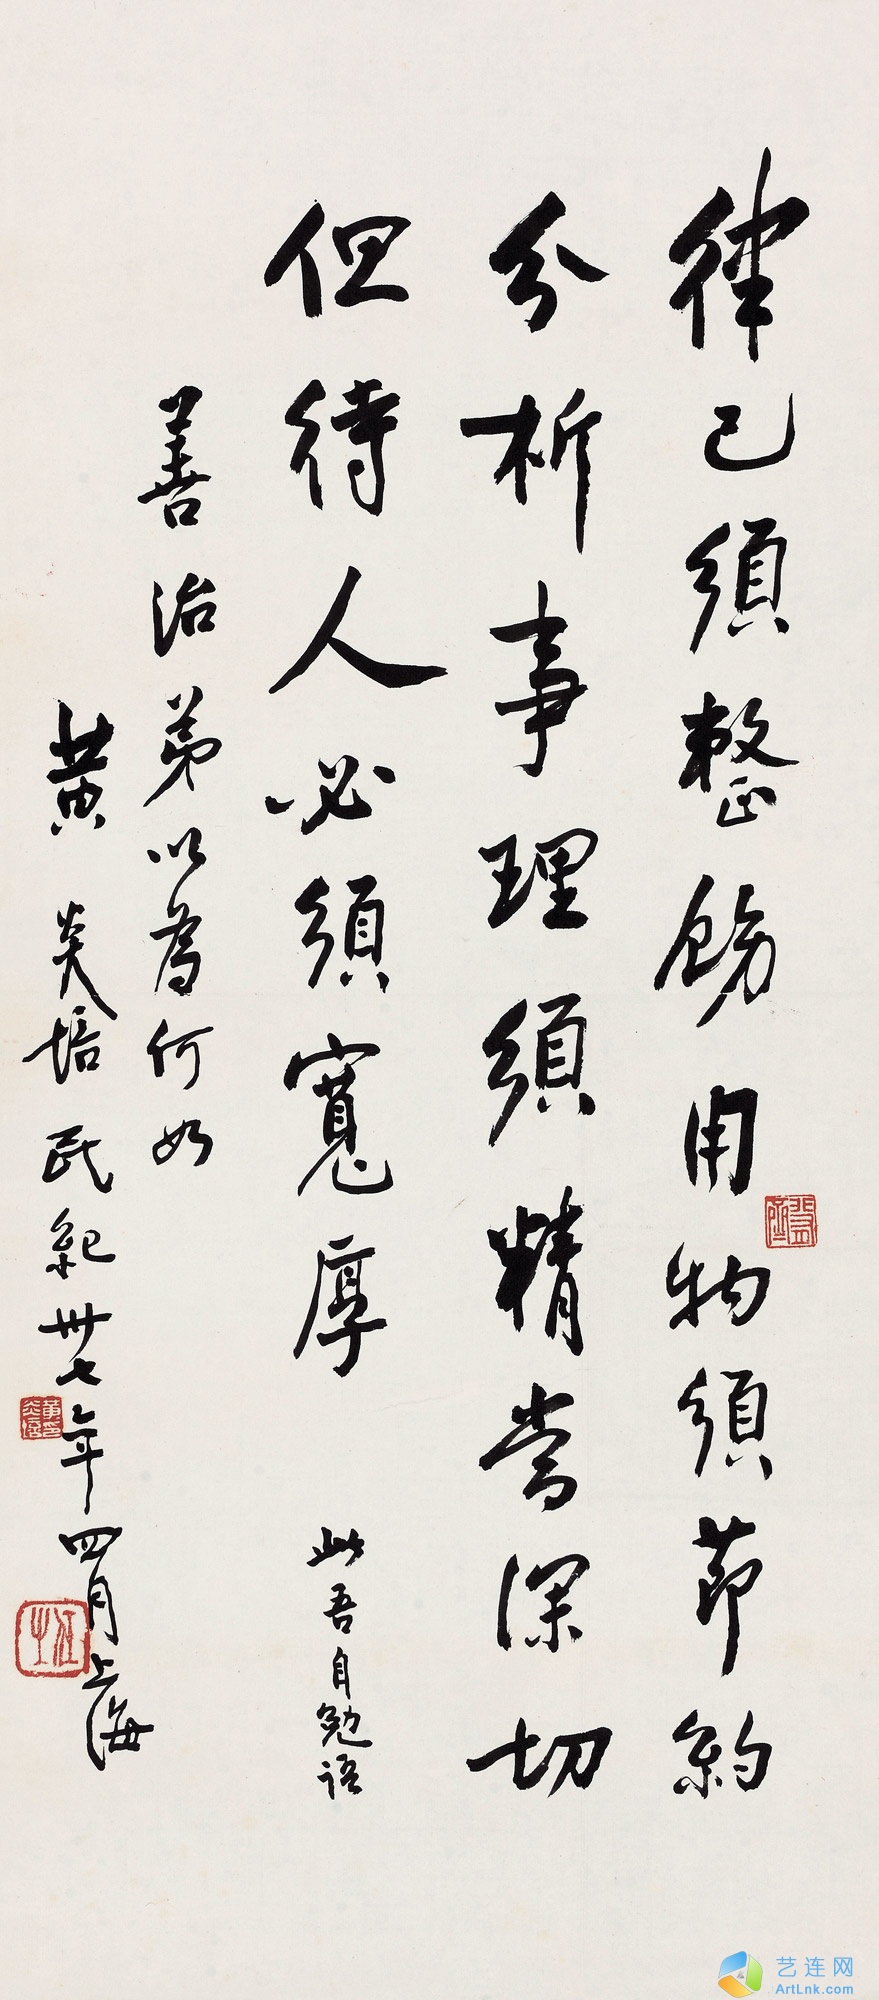 律己須整飭用物須節約
分析事理須精當深切
但待人必須寬厚 此吾自勉語
善治弟以為何如
黃炎培民紀卅七年四月上海
艺连网
ArtLnk.com